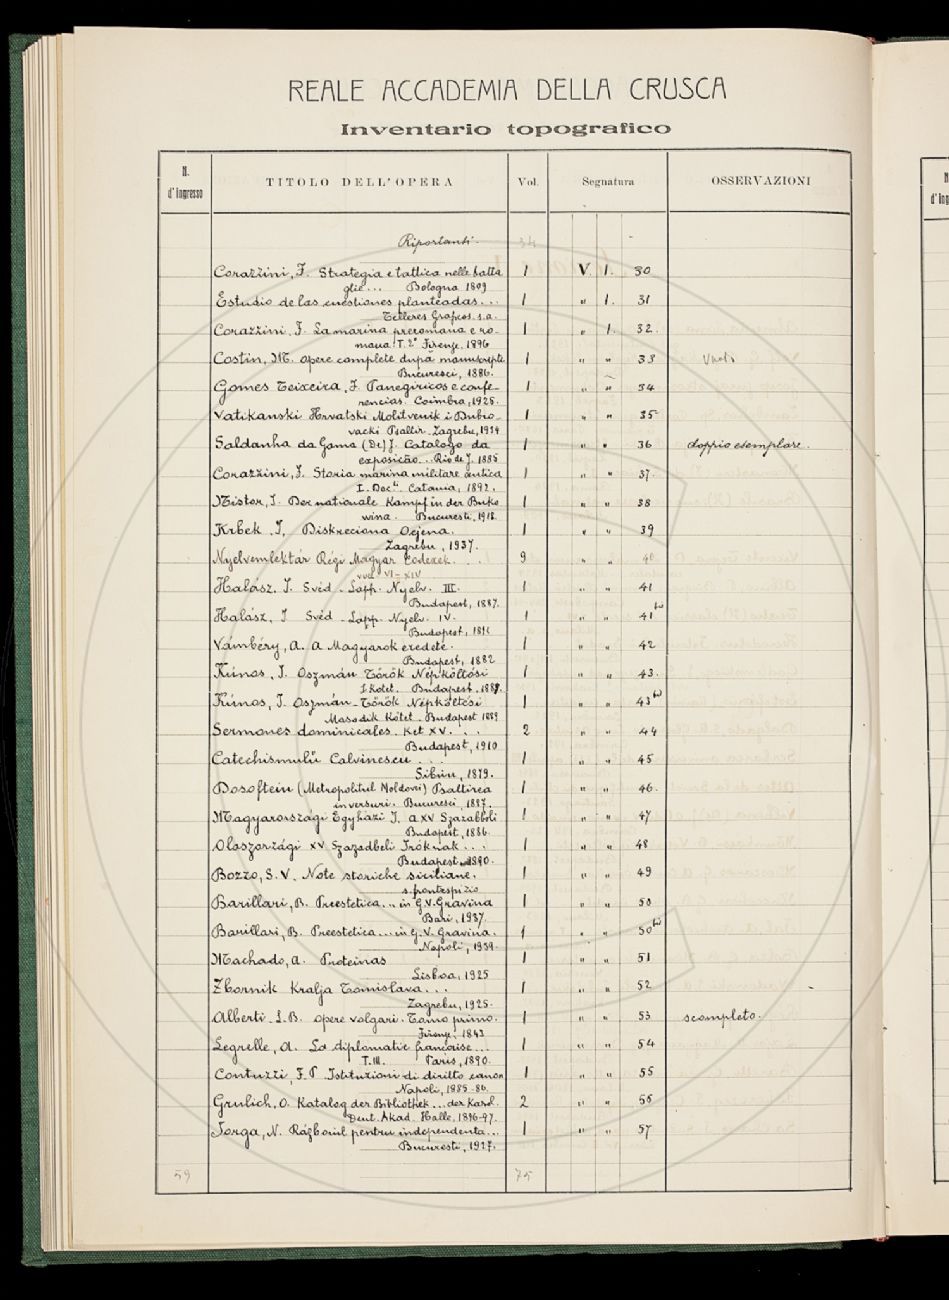 REALE ACCADEMIA DELLA CRUSCA
Inventario topografico
N. d'Ingresso TITOLO DELL'OPERA Vol. Segnatura OSSERVAZIONI
Riportanti. 34
Corazzini, F. Strategia e tattica nelle batta 1 V. 1. 30
glie... Bologna 1809
Estudio de las cuestiones planteadas... 1 " 1. 31
Telleres Graficos s.a.
Corazzini, F. La marina preromana e ro- 1 " 1. 32.
mana T. 2° Firenze, 1896
Costin, M. Opere complete după manuscripte 1 " " 33
Bucuresci, 1886.
Gomes Teixeira, F. Panegiricos e confe- 1 " " 34
rencias. Coimbra, 1925.
Vatikanski Hrvatski Molitvenik i Dubro- 1 " " 35
vacki Psaltir. Zagrebu, 1934
Saldanha da Gama (De) J. Catalogo da 1 " " 36 doppio esemplare.
exposicão... Rio de J. 1885
Corazzini, F. Storia marina militare antica 1 " " 37.
I. Doc.ti Catania, 1892.
Nistor, I. Der nationale Kampf in der Buko 1 " " 38
wina. Bucuresti, 1918.
Krbek. I, Diskreciona Ocjena. 1 " " 39
Zagrebu, 1937.
Nyelvemlektár Régi Magyar Codexek... 9 " " 40
voll. VI-XIV
Halász, I. Svéd-Lapp. Nyelv. III. 1 " " 41
Budapest, 1887.
Halász, I. Svéd-Lapp. Nyelv. IV. 1 " " 41
Budapest,
Vámbéry, A. A Magyarok eredete. 1 " " 42
Budapest, 1882
Kúnos, I. Oszmán Török Népköltósi 1 " " 43.
I Kötet. Budapest.
Kúnos, I. Oszmán-Török Népköltési 1 " " 43
Masodik Kötet. Budapest 1889
Sermones dominicales. Ket XV... 2 " " 44
Budapest, 1910
Catechismulŭ Calvinescu... 1 " " 45
Sibiiu, 1879.
Dosofteiu (Metropolitul Moldovei) Psaltirea 1 " " 46.
in versuri. Bucuresci, 1887.
Magyarországi Egyházi I. a XV Szazabbeli 1 " " 47
Budapest, 1886.
Olaszországi XV Szazadbeli Iróknak... 1 " " 48
Budapest 1890.
Bozzo, S.V. Note storiche siciliane. 1 " " 49
s. frontespizio
Barillari, B. Preestetica... in G.V. Gravina 1 " " 50
Bari, 1937.
Barillari, B. Preestetica... in G.V. Gravina. 1 " " 50
Napoli, 1939.
Machado, A. Proteinas 1 " " 51
Lisboa, 1925
Zbornik Kralja Tomislava... 1 " " 52
Zagrebu, 1925.
Alberti L.B. Opere volgari. Tomo primo. 1 " " 53 scompleto.
Firenze, 1843
Legrelle, A. La diplomatie française... 1 " " 54
T. III. Paris, 1890.
Contuzzi, F.P. Istituzioni di diritto canon 1 " " 55
Napoli, 1885-86.
Grulich, O. Katalog der Bibliothek... der Karol. 2 " " 56
Deut. Akad. Halle, 1896-97.
Iorga, N. Războiul pentru independenta... 1 " " 57
Bucuresti, 1927.
59 75